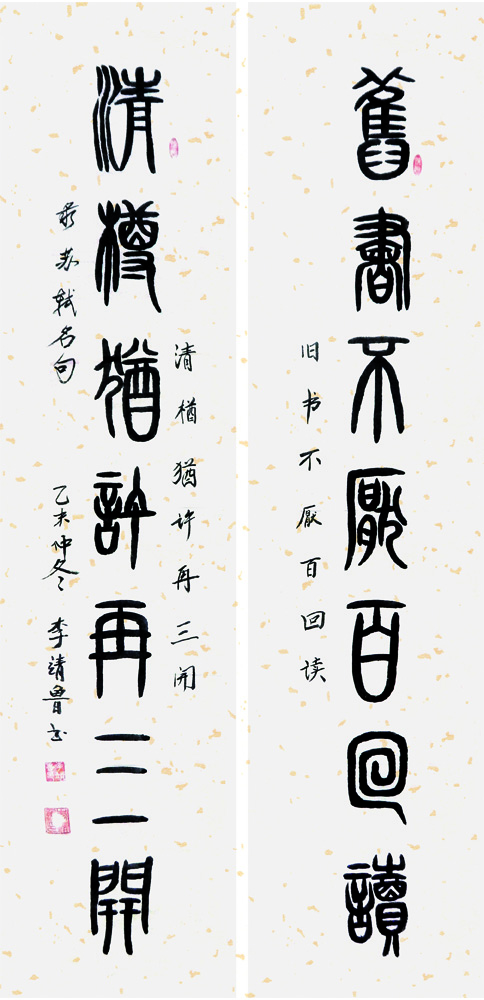 舊書不厭百回讀
旧书不厭百回读
清樽猶許再三開
清樽猶许再三开
苏轼名句
乙未仲冬 李靖鲁书